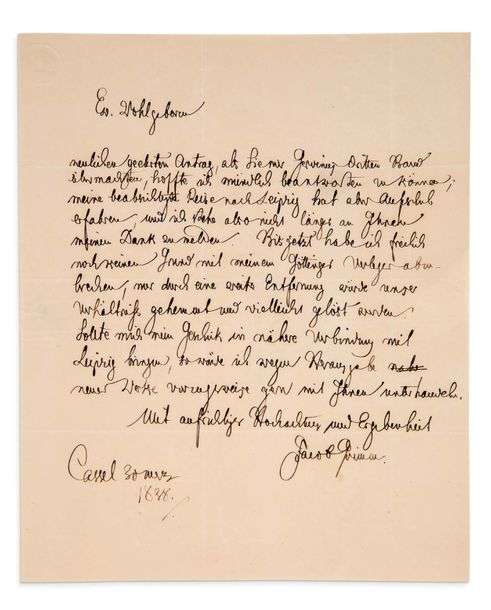 Ew. Wohlgeboren
neulichen geehrten Antrag, als Sie mir Gervinus dritten Band
übermachten, hoffte ich mündlich beantworten zu können;
meine beabsichtigte Reise nach Leipzig hat aber Aufschub
erfahren, und ich stehe also nicht länger an Ihnen
meinen Dank zu melden. Bis jetzt habe ich freilich
noch keinen Grund mit meinem Göttinger Verleger abzu-
brechen, nur durch eine Entfernung würde unser
Verhältniss gehemmt und vielleicht gelöst werden.
Sollte mich mein Geschick in nähere Verbindung mit
Leipzig bringen, so würde ich wegen Herausgabe
neuer Werke vorzugsweise gern mit Ihnen unterhandeln.
Mit aufrichtiger Hochachtung und Ergebenheit
Jacob Grimm.
Cassel 30 merz
1838.